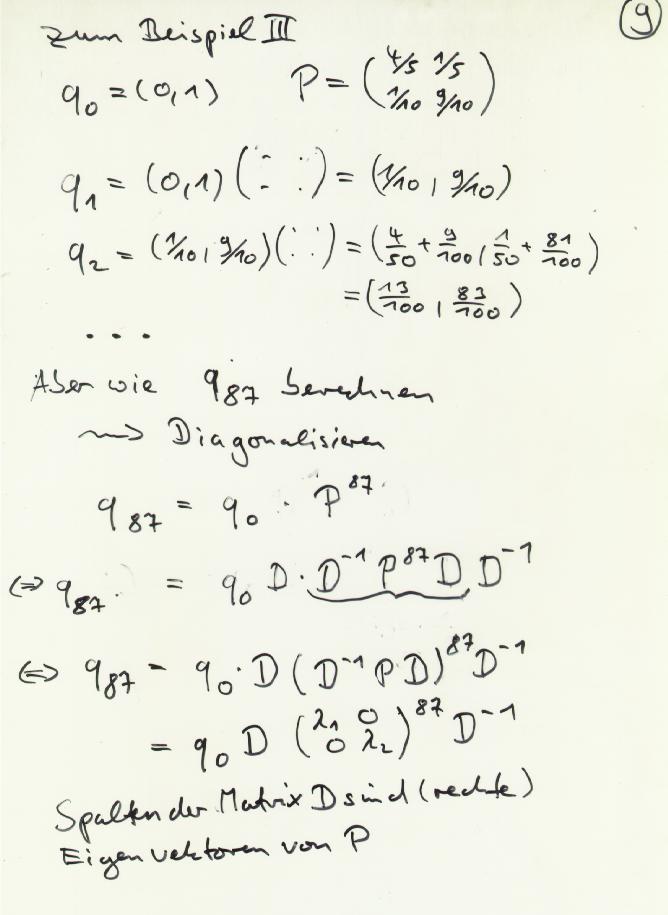 9
zum Beispiel III
q₀ = (0,1) P = (4/5 1/5
1/10 9/10)
q₁ = (0,1)(: :) = (1/10, 9/10)
q₂ = (1/10, 9/10)(: :) = (4/50 + 9/100, 1/50 + 81/100)
= (13/100, 83/100)
...
Aber wie q₈₇ berechnen
⇝ Diagonalisieren
q₈₇ = q₀ · P⁸⁷
⇔ q₈₇ = q₀ D · D⁻¹ P⁸⁷ D D⁻¹
⇔ q₈₇ = q₀ · D (D⁻¹ P D)⁸⁷ D⁻¹
= q₀ D (λ₁ 0
0 λ₂)⁸⁷ D⁻¹
Spalten der Matrix D sind (rechte)
Eigenvektoren von P